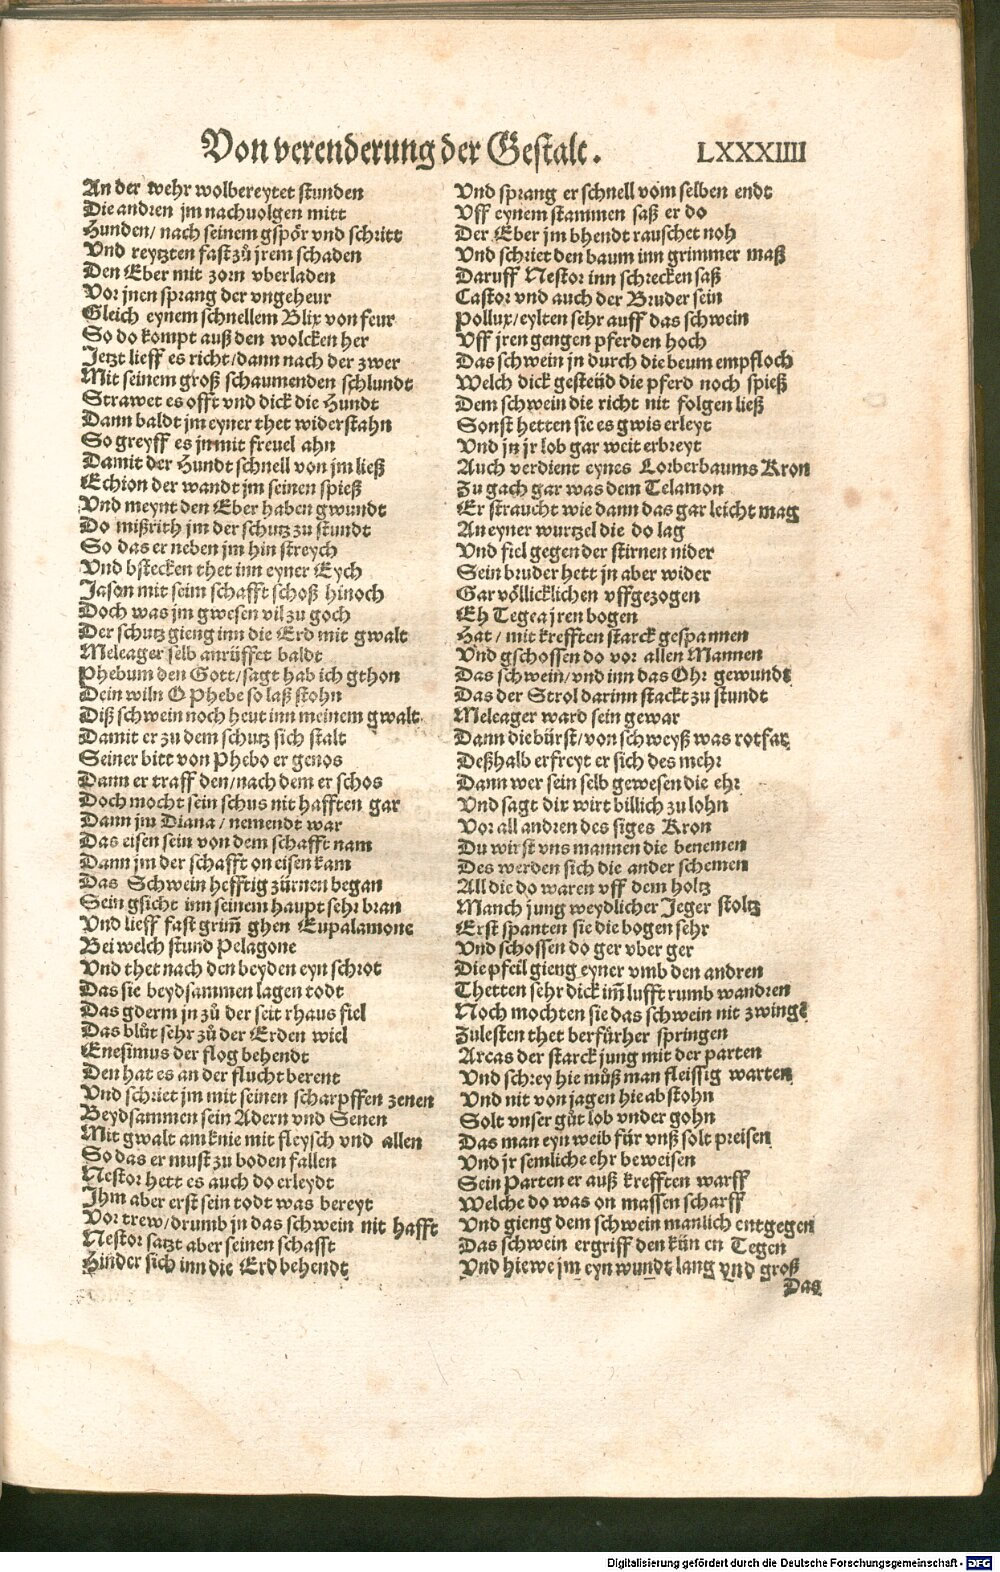 Von verenderung der Gestalt.
LXXXIIII
An der wehr wolbereytet stunden
Die andren jm nachuolgen mitt
Hunden/ nach seinem gspör vnd schritt
Vnd reytzten fast zů jrem schaden
Den Eber mit zorn vberladen
Vor jnen sprang der vngeheur
Gleich eynem schnellem Blix von feur
So do kompt auß den wolcken her
Jetzt lieff es richt/dann nach der zwer
Mit seinem groß schaumenden schlundt
Strawet es offt vnd dick die Hundt
Dann baldt jm eyner thet widerstahn
So greyff es jn mit freuel ahn
Damit der Hundt schnell von jm ließ
Echion der wandt jm seinen spieß
Vnd meynt den Eber haben gwundt
Do mißrith jm der schutz zu stundt
So das er neben jm hin streych
Vnd bstecken thet inn eyner Eych
Jason mit seim schafft schoß hinoch
Doch was jm gwesen vil zu goch
Der schutz gieng inn die Erd mit gwalt
Meleager selb anrüffet baldt
Phebum den Gott/sagt hab ich gthon
Dein wiln O Phebe so laß stohn
Diß schwein noch heut inn meinem gwalt
Damit er zu dem schutz sich stalt
Seiner bitt von Phebo er genos
Dann er traff den/nach dem er schos
Doch mocht sein schus nit hafften gar
Dann jm Diana/ nemendt war
Das eisen sein von dem schafft nam
Dann jm der schafft on eisen kam
Das Schwein hefftig zürnen began
Sein gsicht inn seinem haupt sehr bran
Vnd lieff fast grim̃ ghen Eupalamone
Bei welch stund Pelagone
Vnd thet nach den beyden eyn schrot
Das sie beydsammen lagen todt
Das gderm jn zů der seit rhaus fiel
Das blůt sehr zů der Erden wiel
Enesimus der flog behendt
Den hat es an der flucht berent
Vnd schriet jm mit seinen scharpffen zenen
Beydsammen sein Adern vnd Senen
Mit gwalt am knie mit fleysch vnd allen
So das er must zu boden fallen
Nestor hett es auch do erleydt
Ihm aber erst sein todt was bereyt
Vor trew/drumb jn das schwein nit hafft
Nestor satzt aber seinen schafft
Hinder sich inn die Erd behendt
Vnd sprang er schnell vom selben endt
Vff eynem stammen saß er do
Der Eber jm bhendt rauschet noh
Vnd schriet den baum inn grimmer maß
Daruff Nestor inn schrecken saß
Castor vnd auch der Bruder sein
Pollux/eylten sehr auff das schwein
Vff jren gengen pferden hoch
Das schwein jn durch die beum empfloch
Welch dick gesteüd die pferd noch spieß
Dem schwein die richt nit folgen ließ
Sonst hetten sie es gwis erleyt
Vnd jn jr lob gar weit erbreyt
Auch verdient eynes Lorberbaums Kron
Zu gach gar was dem Telamon
Er straucht wie dann das gar leicht mag
An eyner wurtzel die do lag
Vnd fiel gegen der stirnen nider
Sein bruder hett jn aber wider
Gar völlicklichen vffgezogen
Eh Tegea jren bogen
Hat/ mit krefften starck gespannen
Vnd gschossen do vor allen Mannen
Das schwein/vnd inn das Ohr gewundt
Das der Strol darinn stackt zu stundt
Meleager ward sein gewar
Dann die bürst/von schweyß was rotfar
Deßhalb erfreyt er sich des mehr
Dann wer sein selb gewesen die ehr
Vnd sagt dir wirt billich zu lohn
Vor all andren des siges Kron
Du wirst vns mannen die benemen
Des werden sich die ander schemen
All die do waren vff dem holtz
Manch jung weydlicher Jeger stoltz
Erst spanten sie die bogen sehr
Vnd schossen do ger vber ger
Die pfeil gieng eyner vmb den andren
Thetten sehr dick im̃ lufft rumb wandren
Noch mochten sie das schwein nit zwingẽ
Zulesten thet berfürher springen
Arcas der starck jung mit der parten
Vnd schrey hie můß man fleissig warten
Vnd nit von jagen hie abstohn
Solt vnser gůt lob vnder gohn
Das man eyn weib für vnß solt preisen
Vnd jr semliche ehr beweisen
Sein Parten er auß krefften warff
Welche do was on massen scharff
Vnd gieng dem schwein manlich entgegen
Das schwein ergriff den kün en Tegen
Vnd hiewe jm eyn wundt lang vnd groß
Das
Digitalisierung gefördert durch die Deutsche Forschungsgemeinschaft - DFG